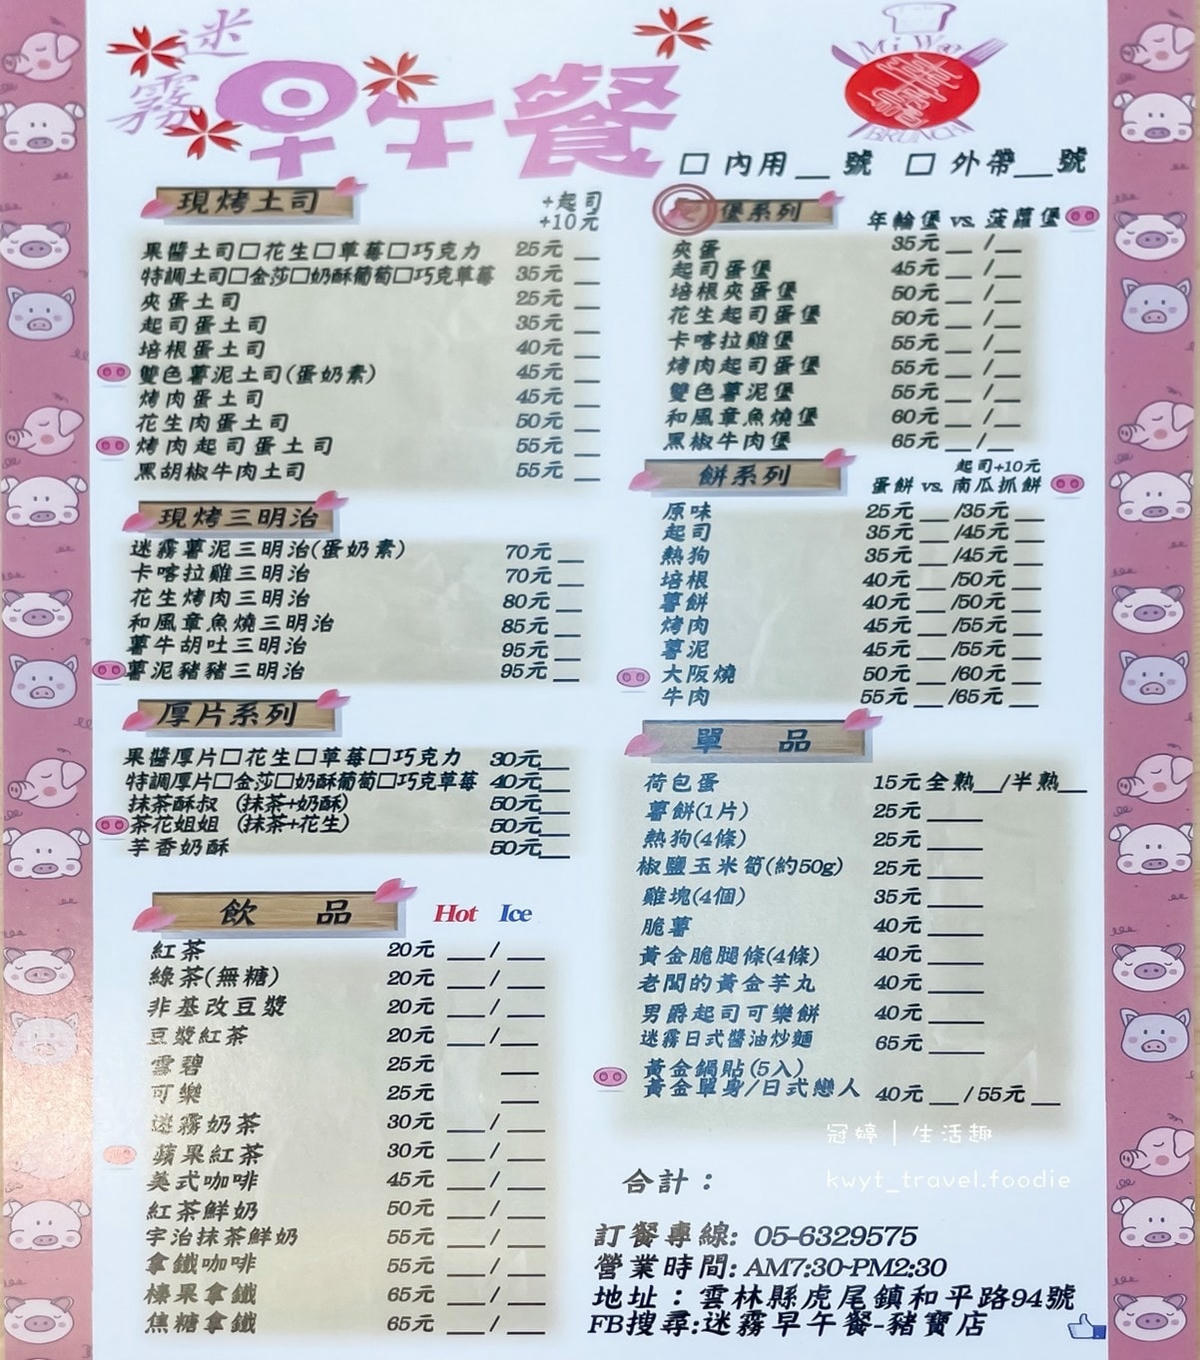 迷霧
早午餐
Mi Woo
迷霧
BRUNCH
□ 內用__ 號 □ 外帶__號
現烤土司
+起司
+10元
果醬土司□花生□草莓□巧克力 25元 __
特調土司□金莎□奶酥葡萄□巧克草莓 35元 __
夾蛋土司 25元 __
起司蛋土司 35元 __
培根蛋土司 40元 __
雙色薯泥土司(蛋奶素) 45元 __
烤肉蛋土司 45元 __
花生肉蛋土司 50元 __
烤肉起司蛋土司 55元 __
黑胡椒牛肉土司 55元 __
現烤三明治
迷霧薯泥三明治(蛋奶素) 70元 __
卡喀拉雞三明治 70元 __
花生烤肉三明治 80元 __
和風章魚燒三明治 85元 __
薯牛胡吐三明治 95元 __
薯泥豬豬三明治 95元 __
厚片系列
果醬厚片□花生□草莓□巧克力 30元__
特調厚片□金莎□奶酥葡萄□巧克草莓 40元__
抹茶酥叔 (抹茶+奶酥) 50元__
茶花姐姐 (抹茶+花生) 50元__
芋香奶酥 50元__
飲品 Hot Ice
紅茶 20元 __/__
綠茶(無糖) 20元 __/__
非基改豆漿 20元 __/__
豆漿紅茶 20元 __/__
雪碧 25元 __
可樂 25元 __
迷霧奶茶 30元 __/__
蘋果紅茶 30元 __/__
美式咖啡 45元 __/__
紅茶鮮奶 50元 __/__
宇治抹茶鮮奶 55元 __/__
拿鐵咖啡 55元 __/__
榛果拿鐵 65元 __/__
焦糖拿鐵 65元 __/__
堡系列
年輪堡 vs. 菠蘿堡
夾蛋 35元 __/__
起司蛋堡 45元 __/__
培根夾蛋堡 50元 __/__
花生起司蛋堡 50元 __/__
卡喀拉雞堡 55元 __/__
烤肉起司蛋堡 55元 __/__
雙色薯泥堡 55元 __/__
和風章魚燒堡 60元 __/__
黑椒牛肉堡 65元 __/__
餅系列
起司+10元
蛋餅 vs. 南瓜抓餅
原味 25元 __/35元 __
起司 35元 __/45元 __
熱狗 35元 __/45元 __
培根 40元 __/50元 __
薯餅 40元 __/50元 __
烤肉 45元 __/55元 __
薯泥 45元 __/55元 __
大阪燒 50元 __/60元 __
牛肉 55元 __/65元 __
單品
荷包蛋 15元全熟__/半熟__
薯餅(1片) 25元 ____
熱狗(4條) 25元 ____
椒鹽玉米筍(約50g) 25元 ____
雞塊(4個) 35元 ____
脆薯 40元 ____
黃金脆腿條(4條) 40元 ____
老闆的黃金芋丸 40元 ____
男爵起司可樂餅 40元 ____
迷霧日式醬油炒麵 65元 ____
黃金鍋貼(5入)
黃金單身/日式戀人 40元 __ / 55元 __
冠婷｜生活趣
kwyt_travel.foodie
合計：
訂餐專線: 05-6329575
營業時間: AM7:30~PM2:30
地址：雲林縣虎尾鎮和平路94號
FB搜尋:迷霧早午餐-豬寶店